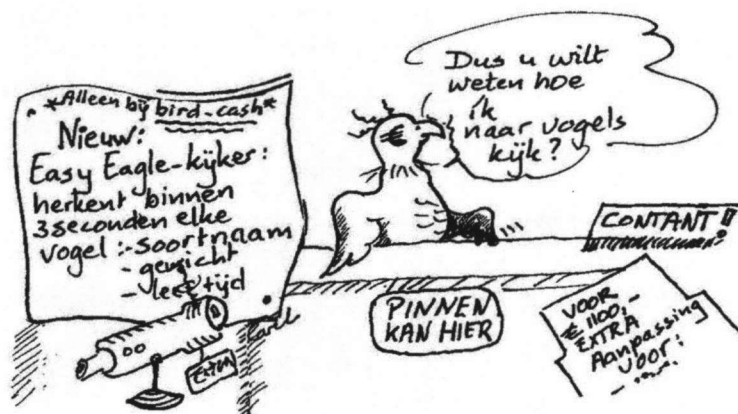 *Alleen bij bird-cash*
Nieuw:
Easy Eagle-kijker:
herkent binnen
3 seconden elke
vogel: - soortnaam
- gewicht
- leeftijd
Extra
Dus u wilt
weten hoe
ik
naar vogels
kijk?
CONTANT!!
PINNEN
KAN HIER
VOOR
€ 1100,-
EXTRA
Aanpassing
voor: